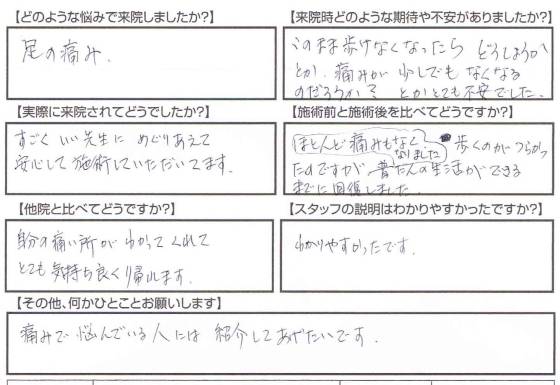 【どのような悩みで来院しましたか?】
足の痛み.
【来院時どのような期待や不安がありましたか?】
このまま歩けなくなったら どうしようか
とか. 痛みが 少しでも なくなる
のだろうか? とかとても不安でした.
【実際に来院されてどうでしたか?】
すごく いい先生に めぐりあえて
安心して 施術していただいてます.
【施術前と施術後を比べてどうですか?】
ほとんど痛みもなく
なりました
歩くのがつらかっ
たのですが 普だんの生活ができる
までに回復しました.
【他院と比べてどうですか?】
自分の痛い所が わかってくれて
とても 気持ち良く帰れます.
【スタッフの説明はわかりやすかったですか?】
わかりやすかったです.
【その他、何かひとことお願いします】
痛みで 悩んでいる人には 紹介してあげたいです.